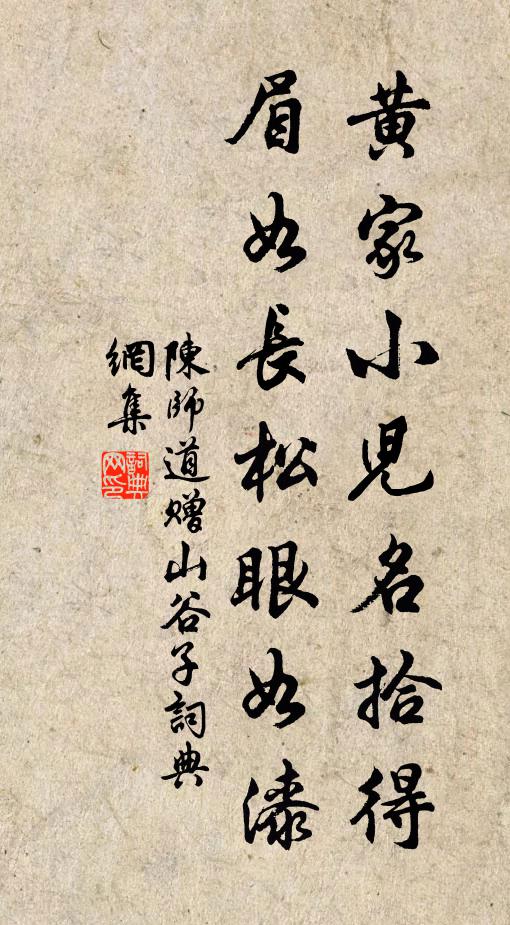 黃家小兒名拾得
眉如長松眼如漆
陳師道贈山谷子詞典
網集
詞典
网印